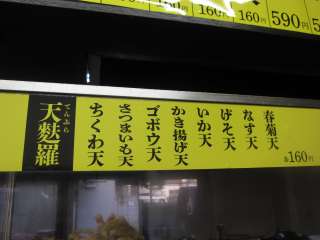 160円
160円
160円
590円
天麩羅
てんぷら
春菊天
なす天
げそ天
いか天
かき揚げ天
ゴボウ天
さつまいも天
ちくわ天
各160円